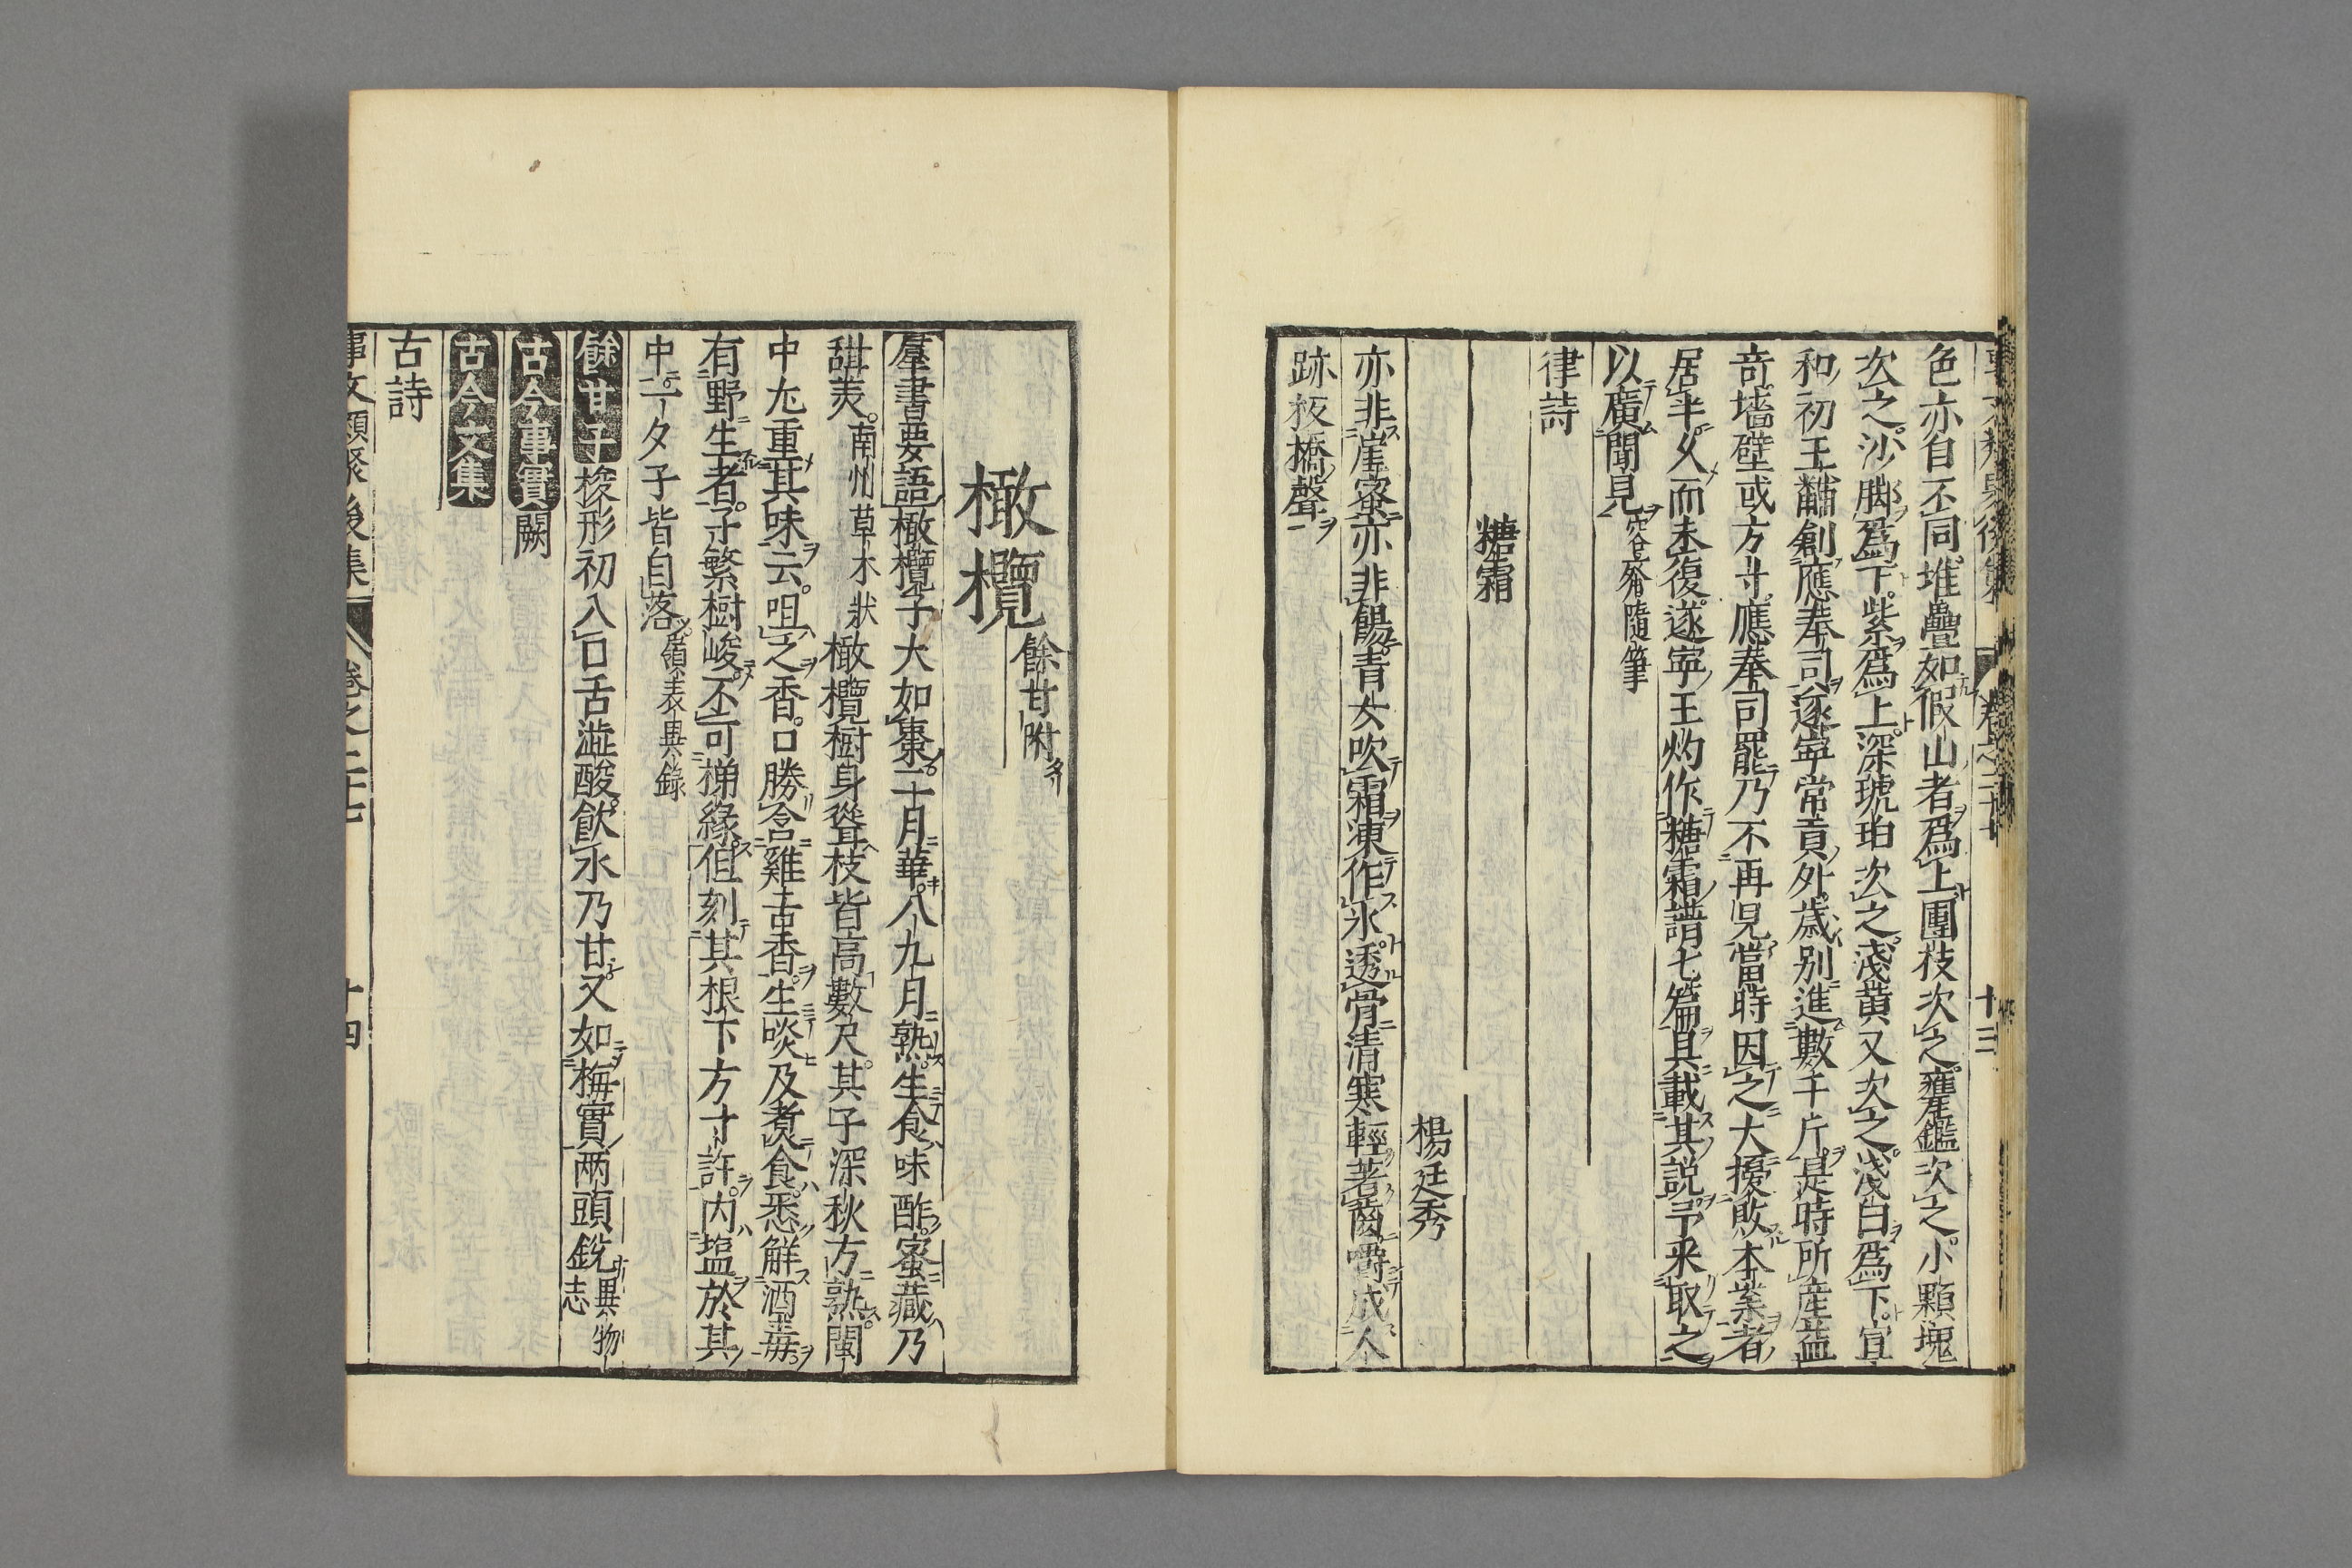 色亦自不同堆疊如假山者爲上團枝次之甕鑑次之小顆塊
次之沙脚爲下紫爲上深琥珀次之淺黄又次之淺白爲下宣
和初王黼創應奉司遂寧常貢外歳别進數千斤是時所産益
竒墻壁或方寸應奉司罷乃不再見當時因之大擾敗本業者
居半久而未復遂寧王灼作糖霜譜七篇具載其説予采取之
以廣聞見容齋隨筆
律詩
糖霜
楊廷秀
亦非崖蜜亦非餳青女吹霜凍作氷透骨清寒輕著齒嚼成人
跡板橋聲
橄欖餘甘附
羣書要語橄欖子大如棗二十月華八九月熟生食味酢蜜藏乃
甜美南州草木狀橄欖樹身聳枝皆高數尺其子深秋方熟閩
中尤重其味云咀之香口勝含雞舌香生啖及煮食悉解酒毒
有野生者子繁樹峻不可梯緣但刻其根下方寸許内塩於其
中一夕子皆自落嶺表異錄
餘甘子梭形初入口舌澁酸飲水乃甘又如梅實兩頭銳異物志
古今事實闕
古今文集
古詩
事文類聚後集 卷之二十七 十四